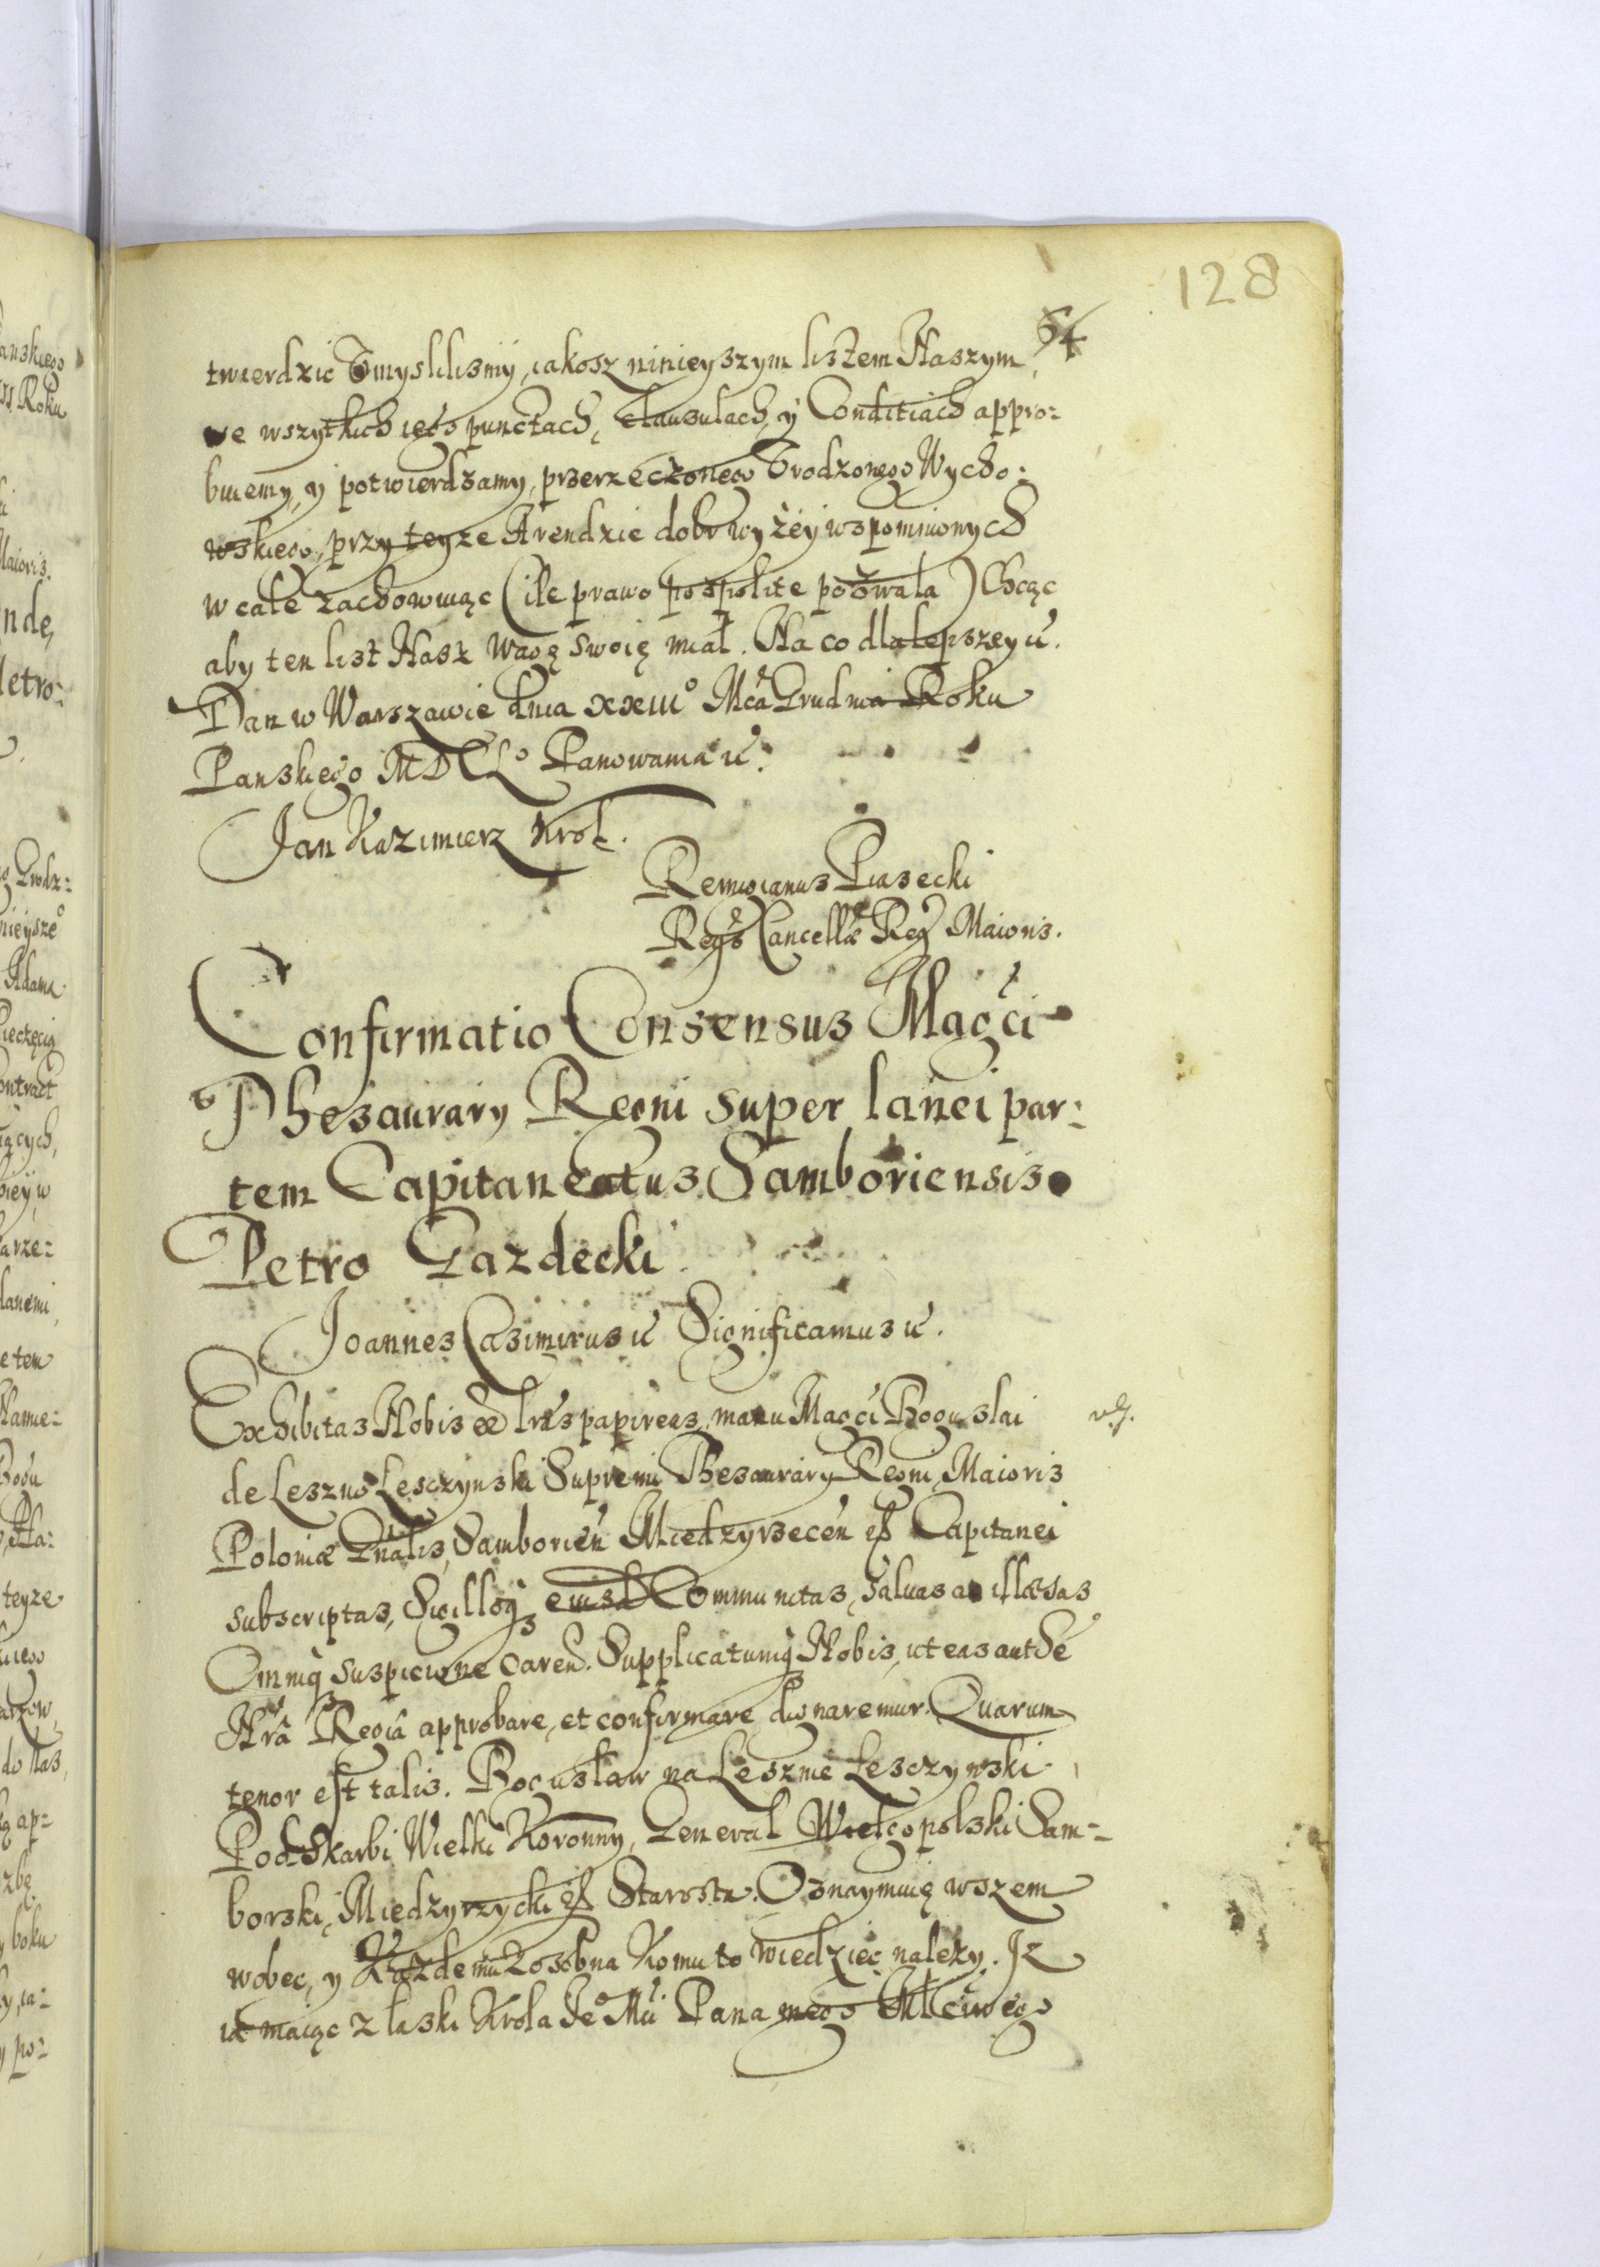 128
64
twierdzić Umyslilismy, iakosz ninieyszym listem Naszym,
we wszytkich iego punctach, clausulach, y Conditiach appro-
buiemy, y potwierdzamy, przerzeczonego Urodzonego Wycho-
wskiego, przy teyze Arendzie dobr wyżey wspomnionych
wcale zachowuiąc (ile prawo pospolite pozwala) Chcąc
aby ten list Nasz wagę swoię miał. Na co dla lepszey &c.
Dan w Warszawie dnia XXIIIo Mca Grudnia Roku
Panskiego MDCLo Panowania &c.
Jan Kazimierz Krol.
Remigianus Piasecki
Regs Cancellæ Reg Maioris.
Confirmatio Consensus Magci
Thesaurary Regni super lanei par-
tem Capitaneatus Samboriensis
Petro Gazdecki.
Joannes Casimirus &c Significamus &c.
Exhibitas Nobis ee lras papireas, manu Magci Boguslai
de Leszno Lesczynski Supremi Thesaurary Regni, Maioris
Poloniæ Gnalis, Samborien Miedzyrzecen &c Capitanei
subscriptas, Sigilloq eiusd Communitas, saluas ac illæsas
Omniq suspicione caren. Supplicatumq Nobis, ut eas autte
Nra Regia approbare, et confirmare dignaremur. Quarum
tenor est talis. Bogusław na Lesznie Lesczynski
Podskarbi Wielki Koronny, General Wielgopolski Sam-
borski, Miedzyrzycki &c Starosta. Oznaymuię wszem
wobec, y Kazdemu zosobna Komu to wiedziec nalezy. Iz
ia maiąc z laski Krola Je Mci Pana mego Młciwego